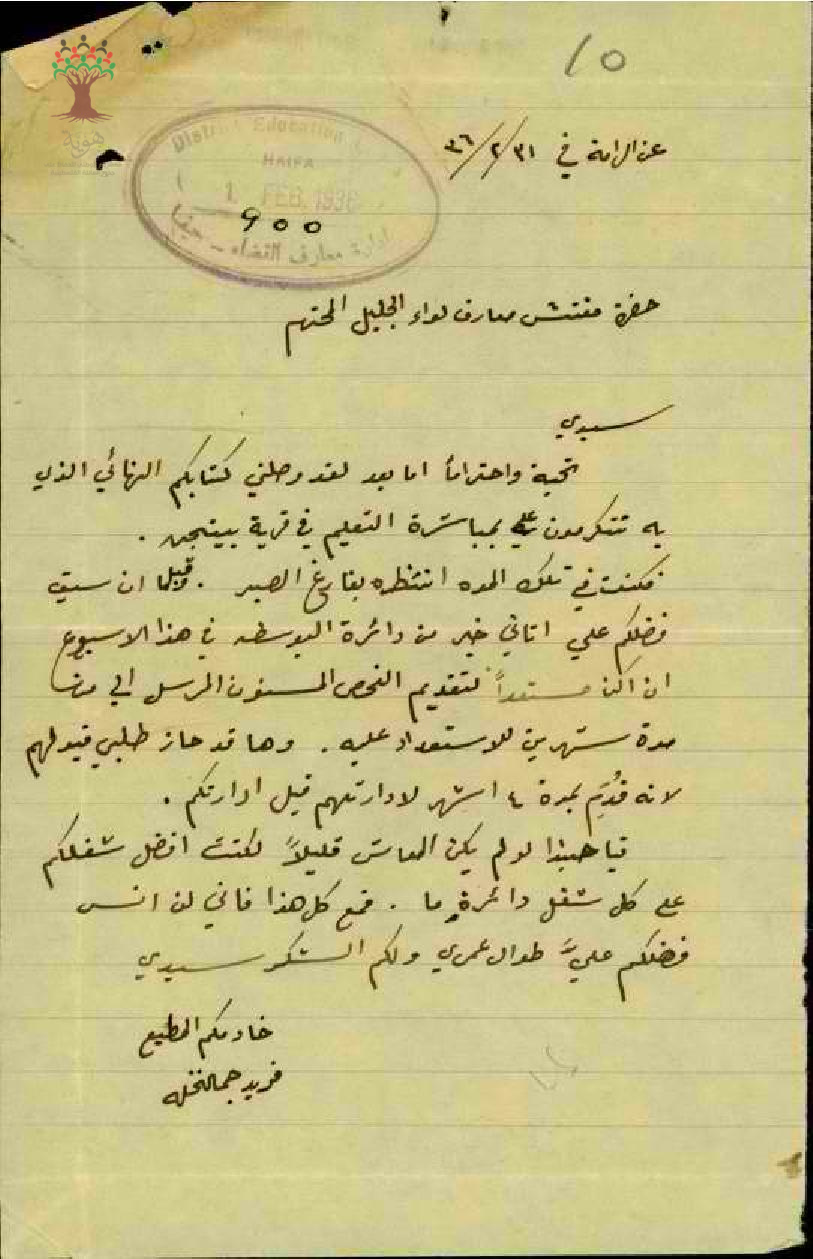 10
عن الرامة في ٣١/٢/٣٦
District Education
HAIFA
1 FEB. 1936
900
ادارة معارف القضاء - حيفا
هوية
حضرة مفتش معارف لواء الجليل المحترم
سيدي
تحية واحتراماً اما بعد لقد وصلني كتابكم النهائي الذي
به تتكرمون علي بمباشرة التعليم في قرية بيتجن .
فكنت في تلك المده انتظره بفارغ الصبر . وقبلما ان سبق
فضلكم علي اتاني خبر من دائرة البوسطه في هذا الاسبوع
ان اكن مستعداً لتقديم الفحص المسنون المرسل الي من
مدة شهرين للاستعداد عليه . وها قد حاز طلبي قبولهم
لانه قُدِّم بمدة ٤ اشهر لادارتهم قبل ادارتكم .
فيا حبذا لو لم يكن المعاش قليلاً لكنت افضل شغلكم
على كل شغل دائرةٍ ما . فمع كل هذا فاني لن انسى
فضلكم عليَّ طوال عمري ولكم الشكر سيدي
خادمكم المطيع
فريد جمال نخله